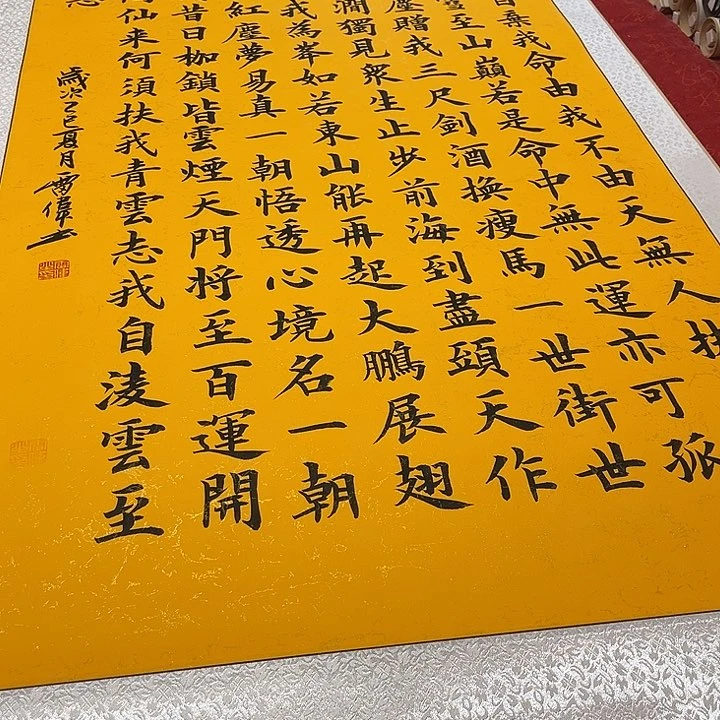 棄我命由我不由天無人扶
至山巔若是命中無此運亦可孤
塵贈我三尺劍酒換瘦馬一世街世
澗獨見眾生止步前海到盡頭天作
我為峯如若東山能再起大鵬展翅
紅塵夢易真一朝悟透心境名一朝
昔日枷鎖皆雲煙天門将至百運開
仙来何須扶我青雲志我自淩雲至
歲次乙巳夏月